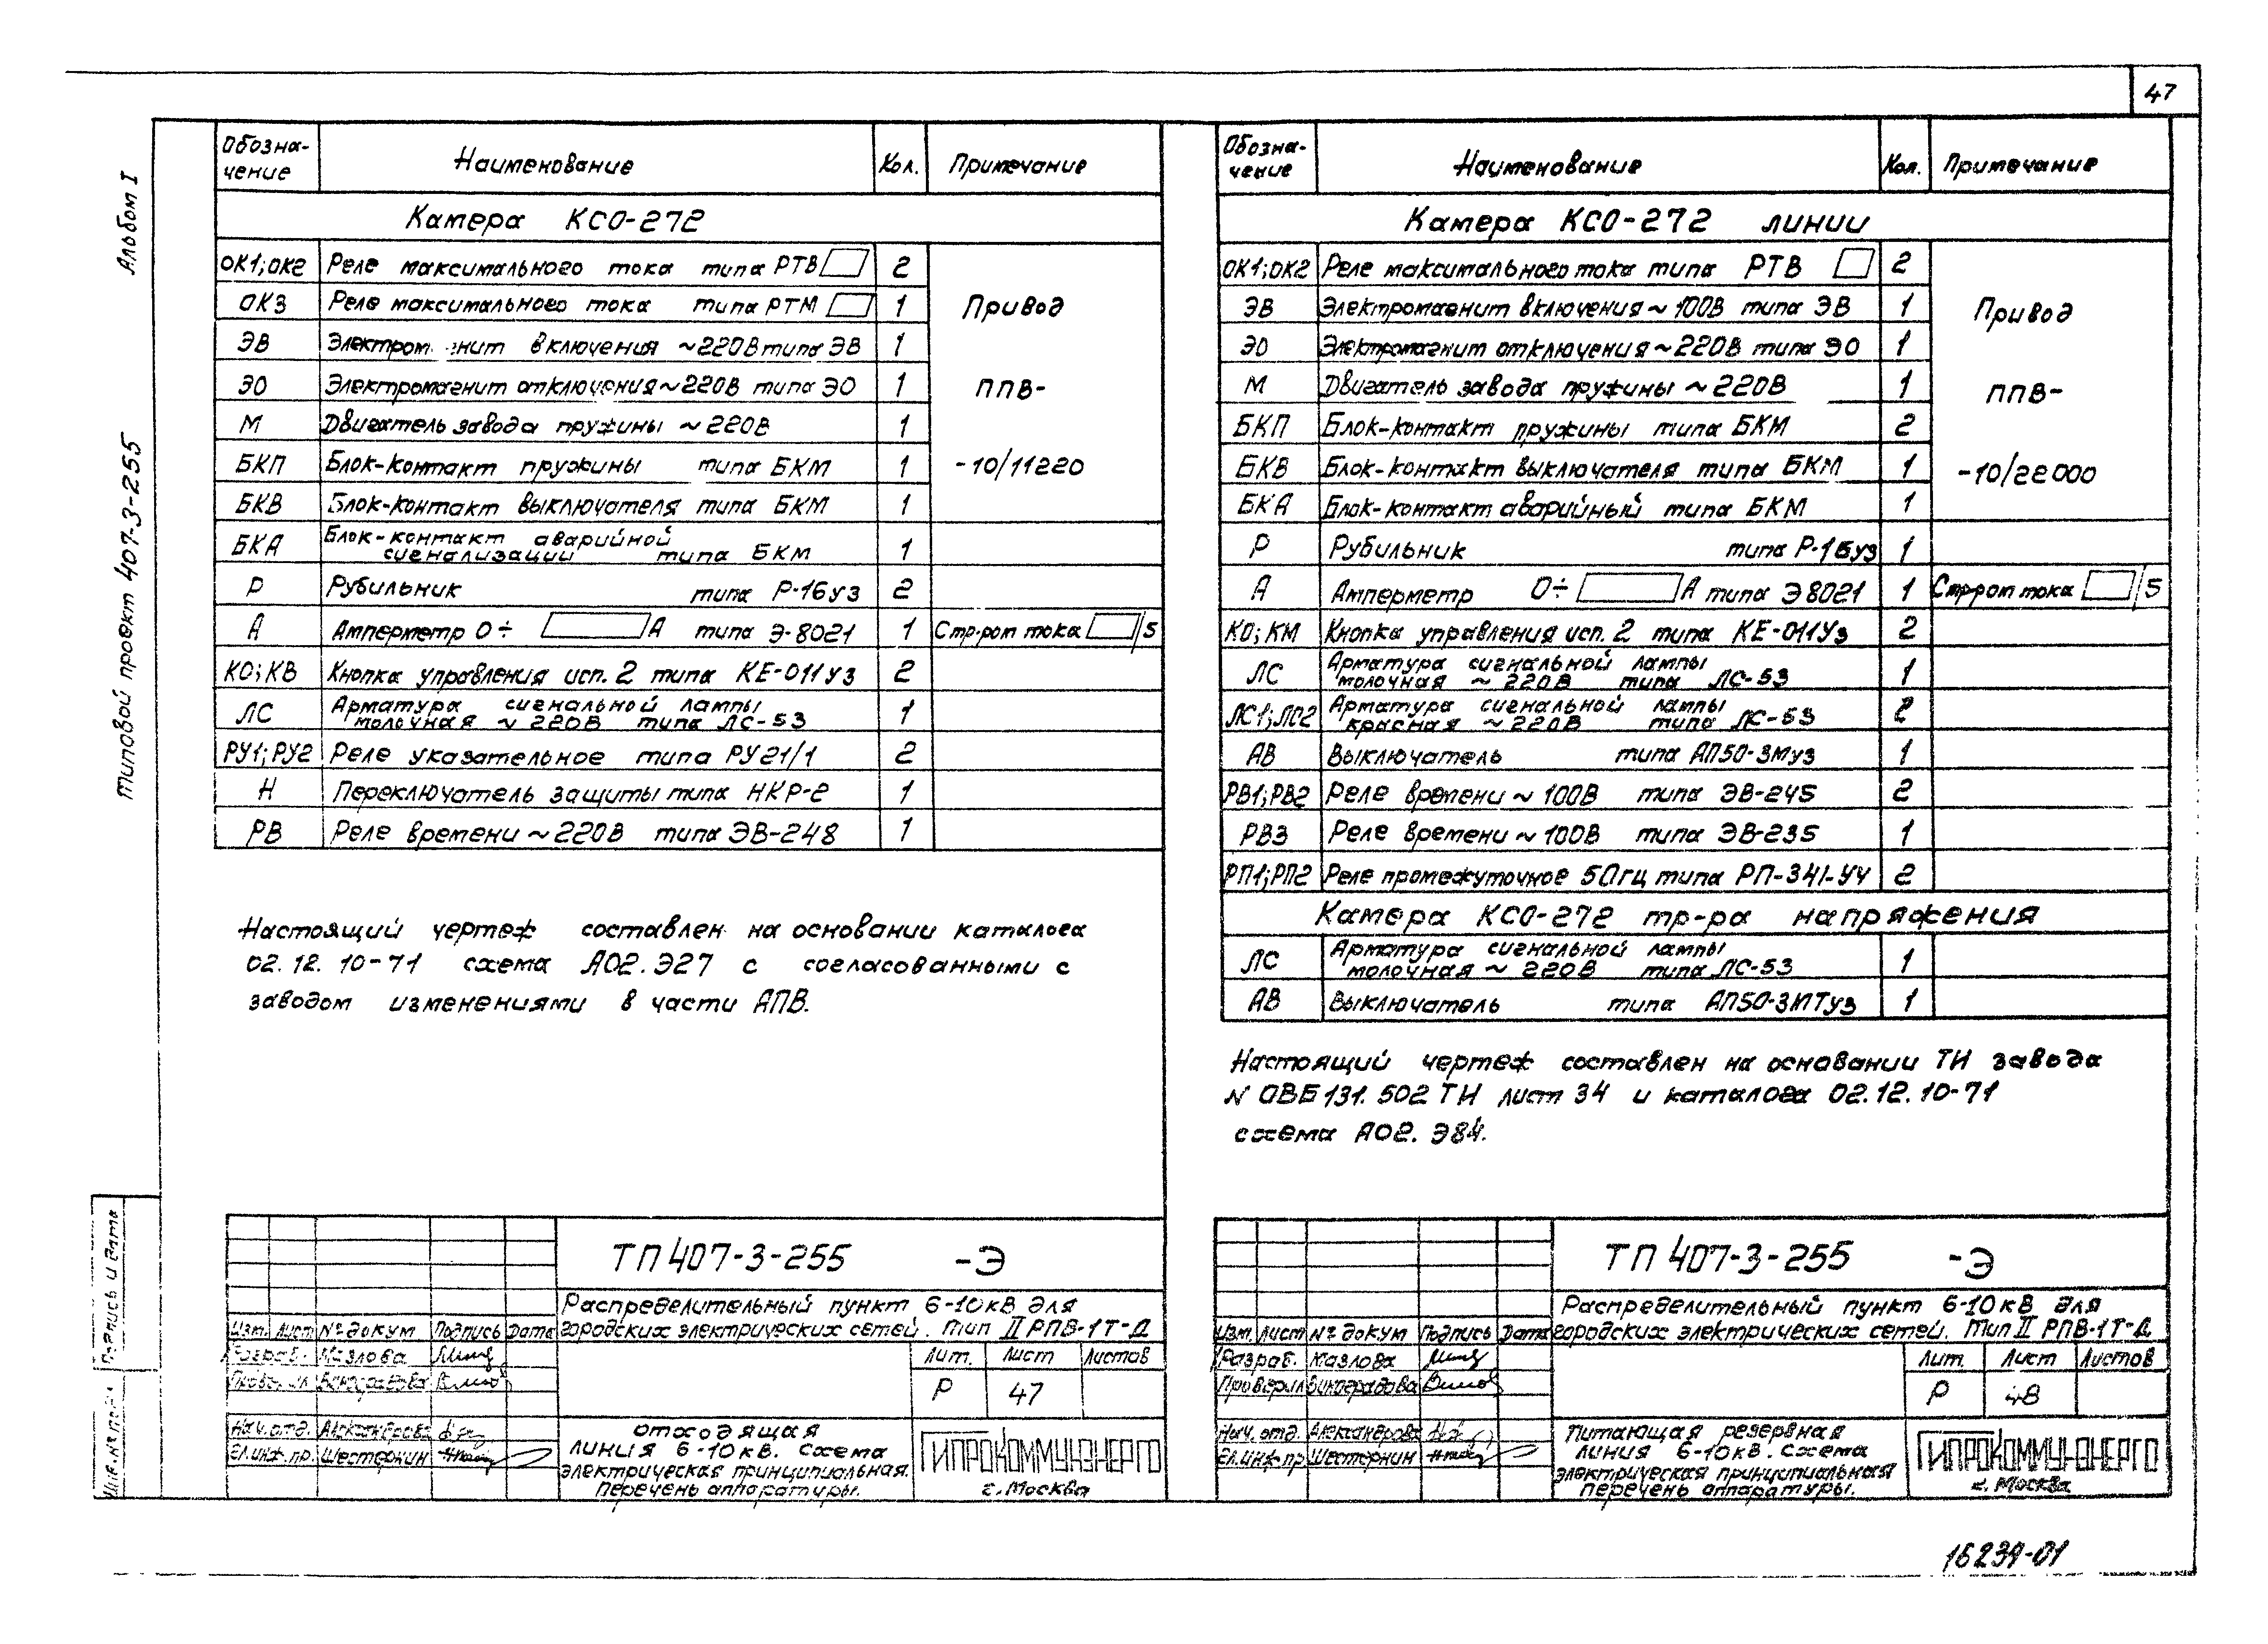 47
Альбом I
Типовой проект 407-3-255
Обозна-
чение
Наименование
Кол.
Примечание
Камера КСО-272
ОК1;ОК2 Реле максимального тока типа РТВ 2
ОК3 Реле максимального тока типа РТМ 1
ЭВ включения ~220В типа ЭВ 1
ЭО Электромагнит отключения ~220В типа ЭО 1
М Двигатель завода пружины ~220В 1
БКП Блок-контакт пружины типа БКМ 1
БКВ Блок-контакт выключателя типа БКМ 1
Привод
ППВ-
-10/11220
БКА Блок-контакт аварийной
сигнализации типа БКМ 1
Р Рубильник типа Р-16У3 2
А Амперметр 0÷ А типа Э-8021 1 Стр-рот тока /5
КО;КВ Кнопка управления исп. 2 типа КЕ-011У3 2
ЛС Арматура сигнальной лампы
молочная ~220В типа ЛС-53 1
РУ1;РУ2 Реле указательное типа РУ21/1 2
Н Переключатель защиты типа НКР-2 1
РВ Реле времени ~220В типа ЭВ-248 1
Настоящий чертеж составлен на основании каталога
02.12.10-71 схема А02.Э27 с согласованными с
заводом изменениями в части АПВ.
ТП 407-3-255 -Э
Распределительный пункт 6-10кВ для
городских электрических сетей. Тип II РПВ-1Т-Д
Изм. Лист № докум Подпись Дата
Разраб. Мазлова
Виноградова
Нач.отд. Александрова
Гл.инж.пр. Шестернин
Лит. Лист Листов
Р 47
Отходящая
линия 6-10кВ. Схема
электрическая принципиальная.
Перечень аппаратуры.
ГИПРОКОММУНЭНЕРГО
г. Москва
Обозна-
чение
Наименование
Кол.
Примечание
Камера КСО-272 линии
ОК1;ОК2 Реле максимального тока типа РТВ 2
ЭВ Электромагнит включения ~100В типа ЭВ 1
ЭО Электромагнит отключения ~220В типа ЭО 1
М Двигатель завода пружины ~220В 1
БКП Блок-контакт пружины типа БКМ 2
БКВ Блок-контакт выключателя типа БКМ 1
БКА Блок-контакт аварийный типа БКМ 1
Привод
ППВ-
-10/22000
Р Рубильник типа Р-16У3 1
А Амперметр 0÷ А типа Э8021 1 Стр-рот тока /5
КО;КМ Кнопка управления исп. 2 типа КЕ-011У3 2
ЛС Арматура сигнальной лампы
молочная ~220В типа ЛС-53 1
ЛС1;ЛС2 Арматура сигнальной лампы
красная ~220В типа ЛС-53 2
АВ Выключатель типа АП50-3МУ3 1
РВ1;РВ2 Реле времени ~100В типа ЭВ-245 2
РВ3 Реле времени ~100В типа ЭВ-235 1
РП1;РП2 Реле промежуточное 50Гц типа РП-341-У4 2
Камера КСО-272 тр-ра напряжения
ЛС Арматура сигнальной лампы
молочная ~220В типа ЛС-53 1
АВ Выключатель типа АП50-3МТУ3 1
Настоящий чертеж составлен на основании ТИ завода
N ОВБ131.502 ТИ лист 34 и каталога 02.12.10-71
схема А02.Э84.
ТП 407-3-255 -Э
Распределительный пункт 6-10кВ для
городских электрических сетей. Тип II РПВ-1Т-Д
Изм. Лист № докум Подпись Дата
Разраб. Мазлова
Проверил Виноградова
Нач. отд. Александрова
Гл.инж.пр Шестернин
Лит. Лист Листов
Р 48
Питающая резервная
линия 6-10кВ. Схема
электрическая принципиальная
Перечень аппаратуры.
ГИПРОКОММУНЭНЕРГО
г. Москва
Подпись и дата
16239-01